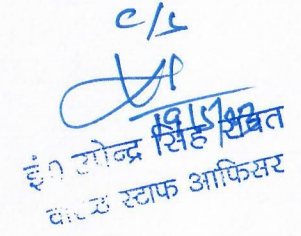 c/s
19/5/
इं० योगेन्द्र सिंह रावत
स्टाफ आफिसर